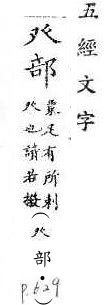 五經文字
癶部
象足有所刺
癶也讀若撥
(癶部)
p.629